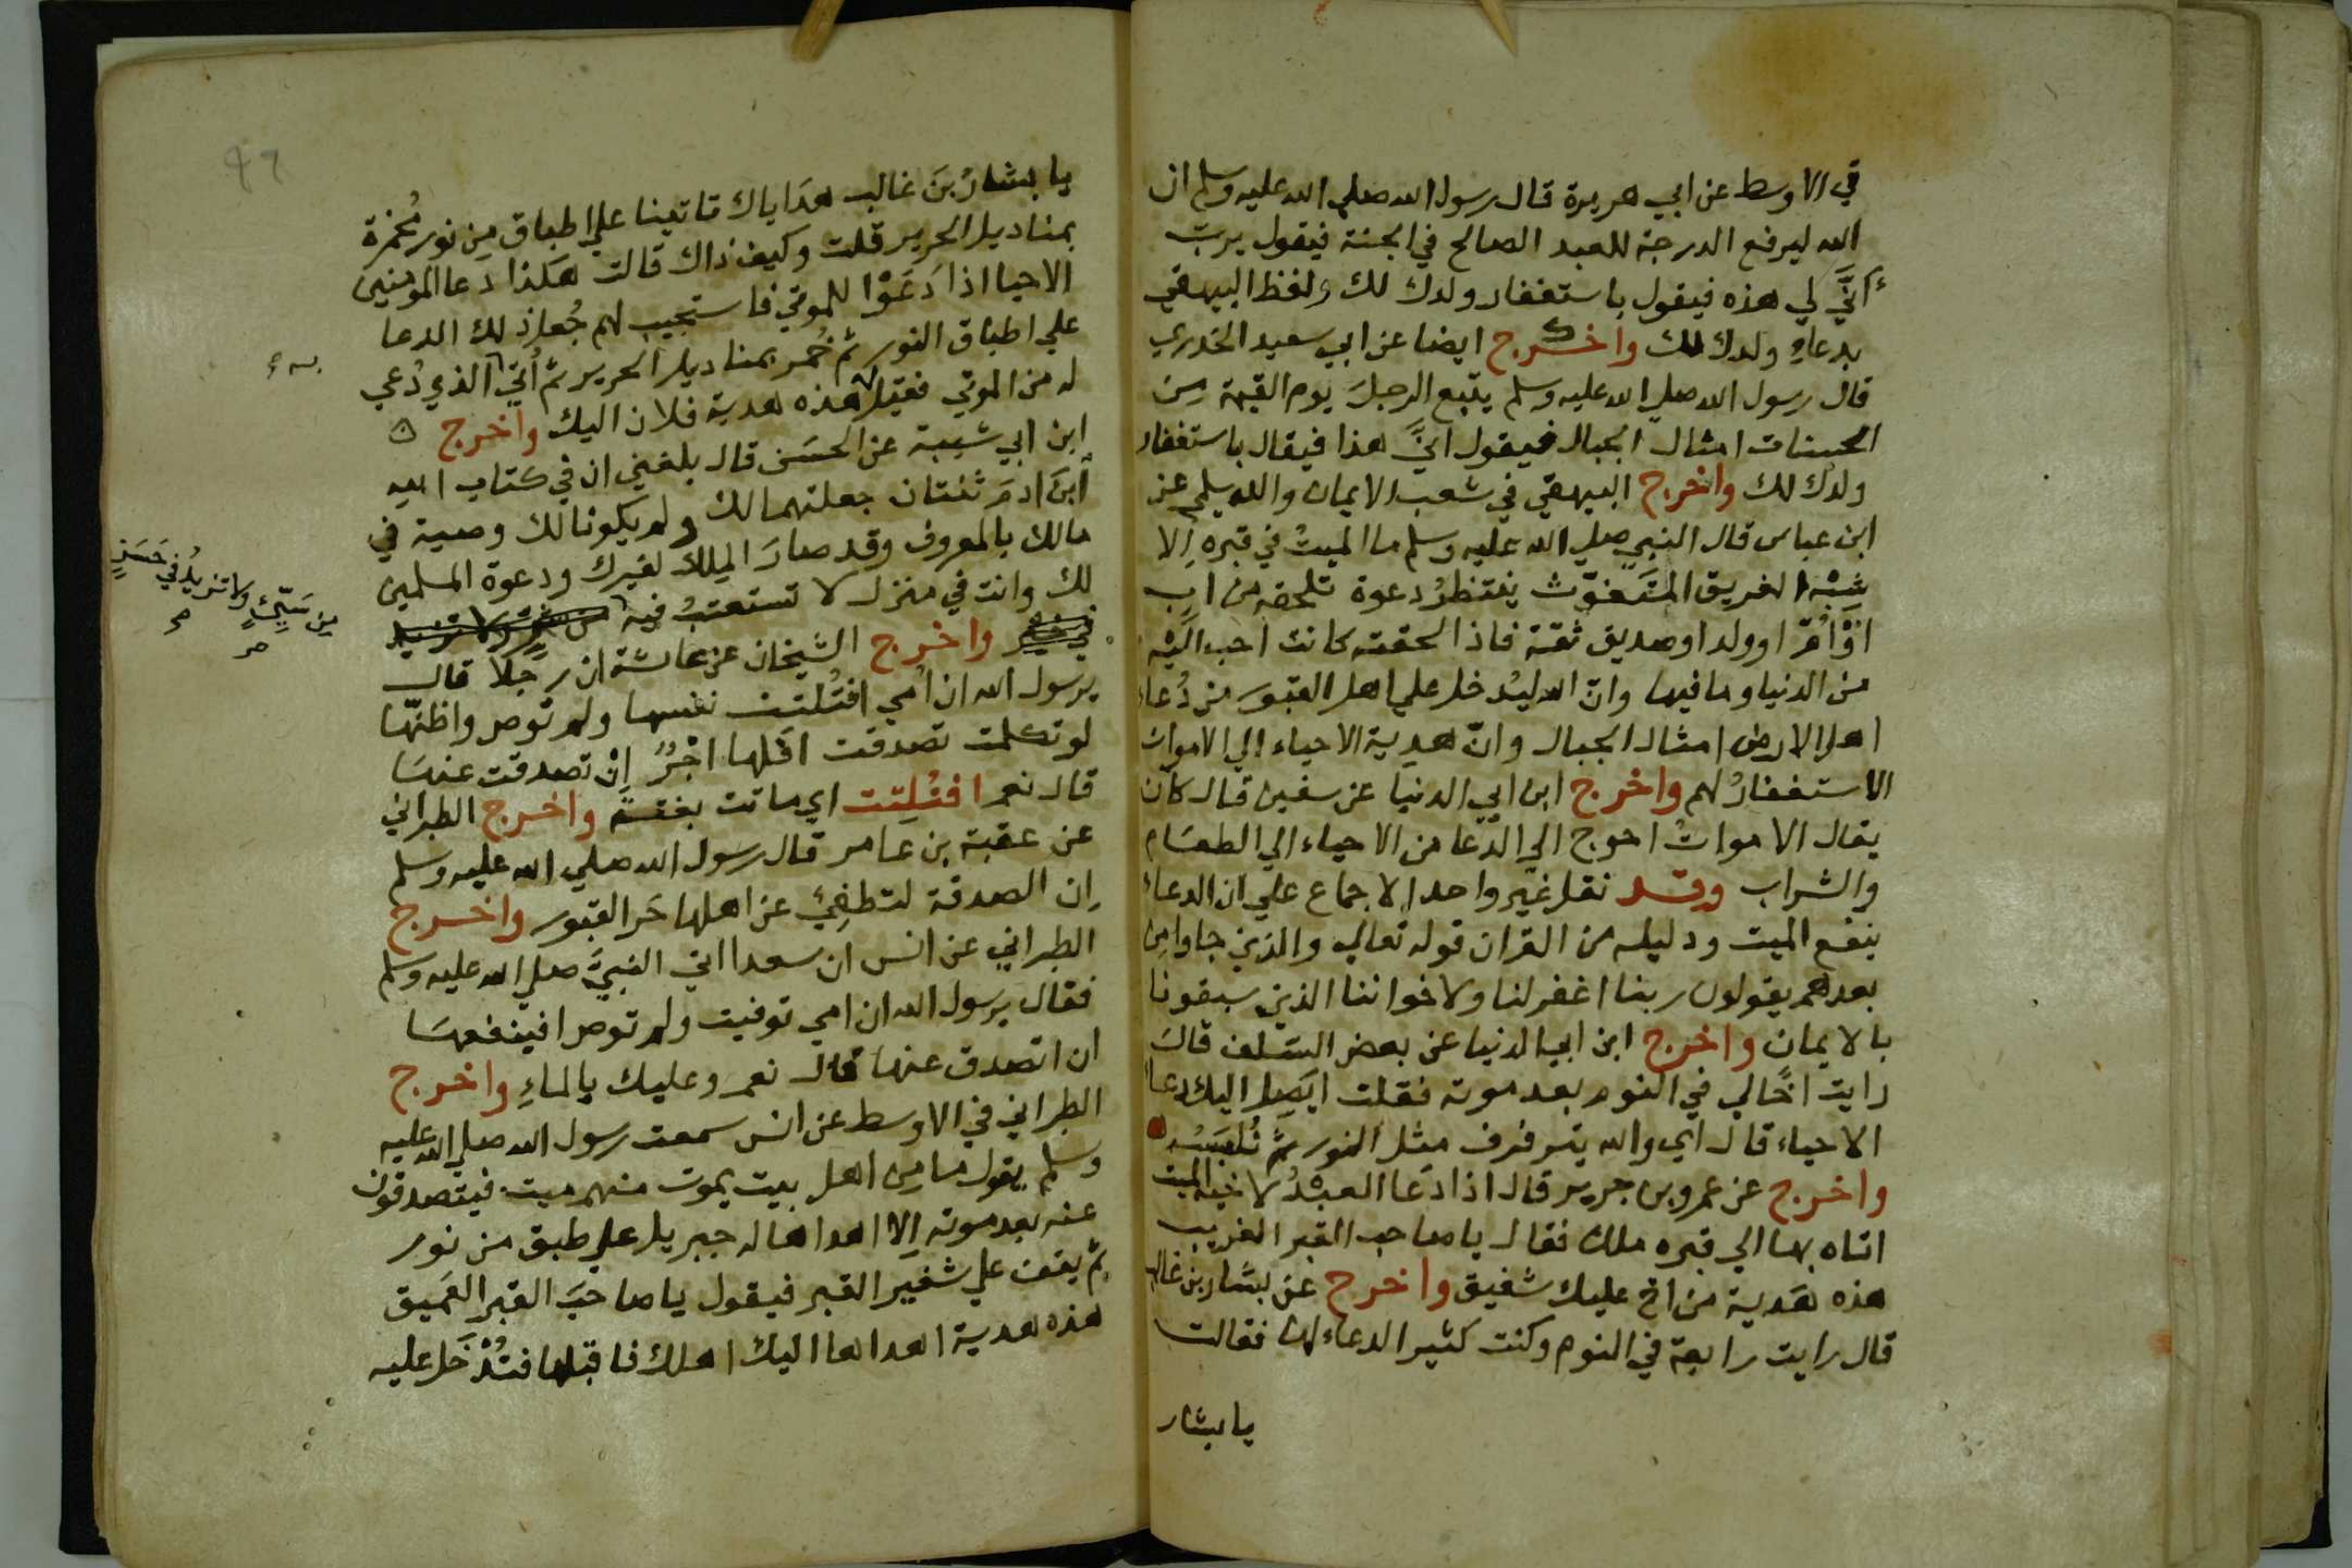 في الاوسط عن ابي هريرة قال رسول الله صلي الله عليه وسلم ان
الله ليرفع الدرجة للعبد الصالح في الجنة فيقول يرب
أنَّي لي هذه فيقول باستغفار ولدك لك ولفظ البيهقي
بدعاءِ ولدك لك واخرج ايضا عن ابي سعيد الخدري
قال رسول الله صلي الله عليه وسلم يتبع الرجلَ يوم القيمة مِن
الحسنات امثال الجبال فيقول انيَّ هذا فيقال باستغفار
ولدك لك واخرج البيهقي في شعب الايمان والديلمي عن
ابن عباس قال النبي صلي الله عليه وسلم ما الميتُ في قبره إلا
شِبْهُ الغريق المتَغوِّث ينتظرُ دعوة تلحقه من ابٍ
اوْ امّ او ولد او صديق ثقة فاذا لحقته كانت احب اليْه
من الدنيا وما فيها وانّ الله ليُدخل علي اهل القبور من دُعاء
اهل الارض امثال الجبال وانّ هدية الاحياء الي الاموات
الاستغفارُ لهم واخرج ابن ابي الدنيا عن سفين قال كان
يقال الاموات احوج الي الدعا من الاحياء الي الطعام
والشراب وقد نقل غير واحد الاجماع علي ان الدعاء
ينفع الميت ودليله من القران قوله تعالي والذين جاوا مِن
بعدهم يقولون ربنا اغفر لنا ولاخواننا الذين سبقونا
بالايمان واخرج ابن ابي الدنيا عن بعض السلف قال
رايت اخًا لي في النوم بعد موته فقلت ايَصِل اليك دعاء
الاحياء قال اي والله يترفرف مثل النور ثمّ نُلبَسُه
واخرج عن عمرو بن جرير قال اذا دَعا العبْدُ لاخيه الميت
اتاه بها الي قبره ملك فقال يا صاحب القبر الغريب
هذه هَدية من اخ عليك شفيق واخرج عن بشار بن غالب
قال رايت رابعة في النوم وكنت كثير الدعاء لها فقالت
يا بشار
٩٦
يا بشارُ بنَ غالب هدَاياك تاتينا علي اطباق مِن نور مُخمّرة
بمناديل الحرير قلت وكيف ذاك قالت هكذا دعا المومنين
الاحيا اذا دَعَوْا للموتي فاستجيب لهم جُعل ذلك الدعا
علي اطباق النور ثم خُمر بمناديل الحرير ثم أُتي الذي دُعي
له من الموتي فقيل هذه هدية فلان اليك واخرج ه
به
ابن ابي شيبة عن الحسَن قال بلغني ان في كتاب الله
ابنَ ادمَ ثنتان جعلتهما لك ولم يكونا لك وصية في
مالك بالمعروف وقد صارَ المِلك لغيرك ودعوة المسلمين
لك وانت في منزل لا تستعتبُ فيه
مِن سَيّئٍ ولا تزيدُ في حَسَنٍ
صح
واخرج الشيخان عن عائشة ان رجلًا قال
يرسول الله ان امي افتُلتت نفسها ولم توصِ واظنّها
لو تكلمت تصدقت افَلها اجْرٌ اِنْ تصدقت عنها
قال نعم افتُلِتت اي ماتت بغتةً واخرج الطبراني
عن عقبة بن عامر قال رسول الله صلي الله عليه وسلم
اِن الصدقة لتطفِئ عن اهلها حَر القبور واخرج
الطبراني عن انس ان سعدا اتي النبيَّ صلي الله عليه وسلم
فقال يرسول الله ان امي توفيت ولم توص افينفعها
ان اتصدق عنها قال نعم وعليك بالماءِ واخرج
الطبراني في الاوسط عن انس سمعت رسول الله صلي الله عليه
وسلم يقول ما مِن اهل بيت يموت منهم ميت فيتصدقون
عنه بعد موته إلا اهداها له جبريل علي طبق من نور
ثم يقف علي شفير القبر فيقول يا صاحبَ القبر العَميق
هذه هدية اهداها اليك اهلك فاقبلها فتُدْخَل عليه